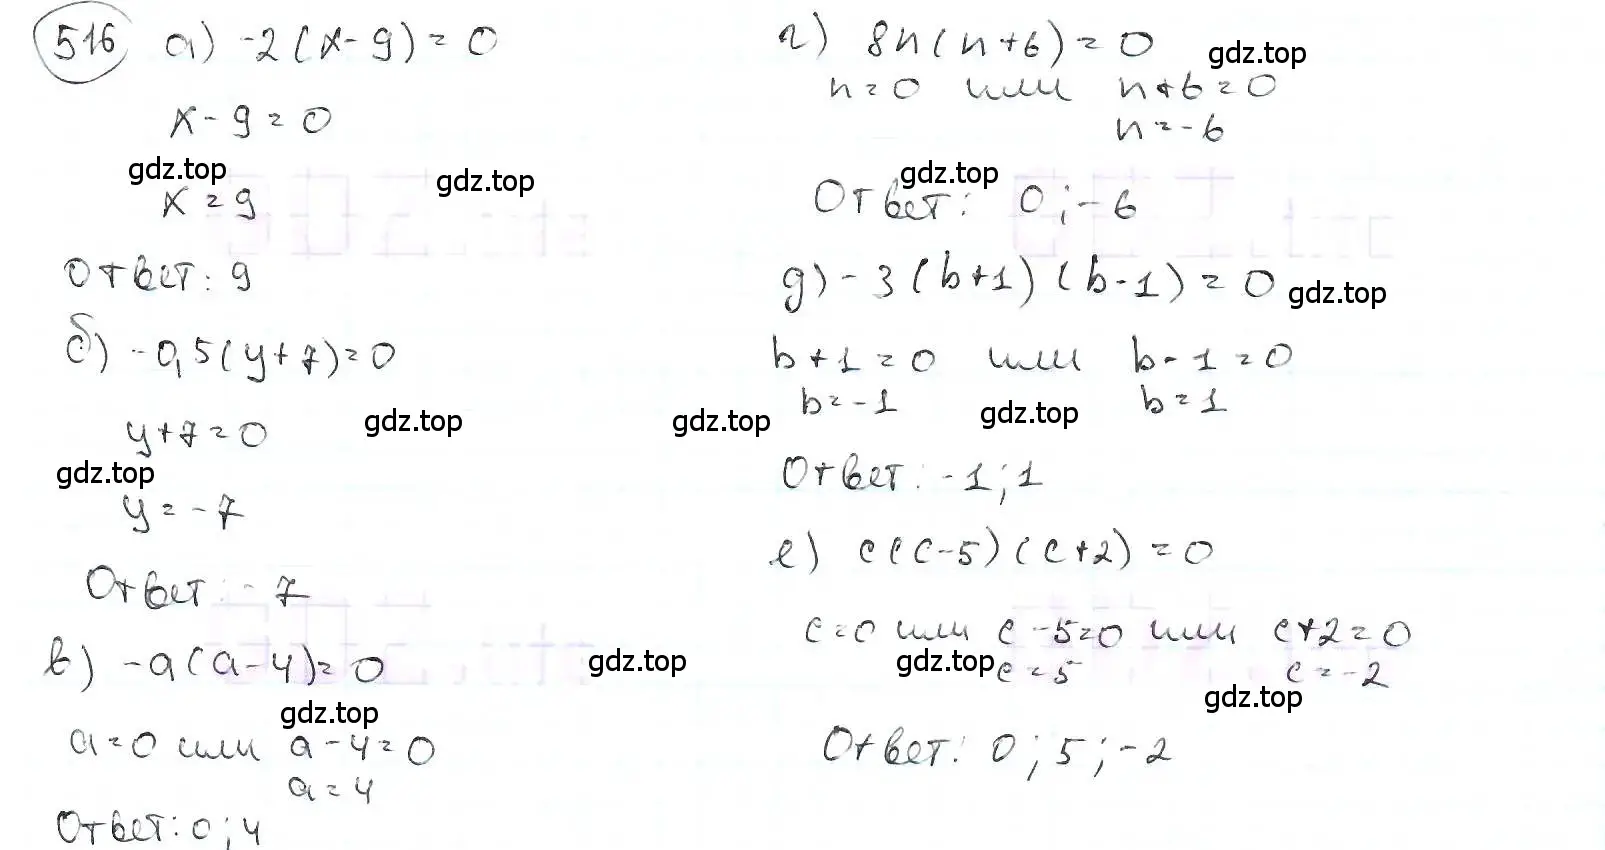 516 а) -2(x-9)=0
x-9=0
gdz.top gdz.top
x=9
Ответ: 9
б) -0,5(y+7)=0
y+7=0
gdz.top gdz.top
gdz.top
y=-7
Ответ: -7
в) -a(a-4)=0
gdz.top
gdz.top
a=0 или a-4=0
a=4
Ответ: 0; 4
г) 8n(n+6)=0
gdz.top
n=0 или n+6=0
n=-6
gdz.top
Ответ: 0; -6
д) -3(b+1)(b-1)=0
gdz.top
b+1=0 или b-1=0
b=-1 b=1
gdz.top
Ответ: -1; 1
е) c(c-5)(c+2)=0
c=0 или c-5=0 или c+2=0
gdz.top c=5 c=-2
gdz.top
Ответ: 0; 5; -2